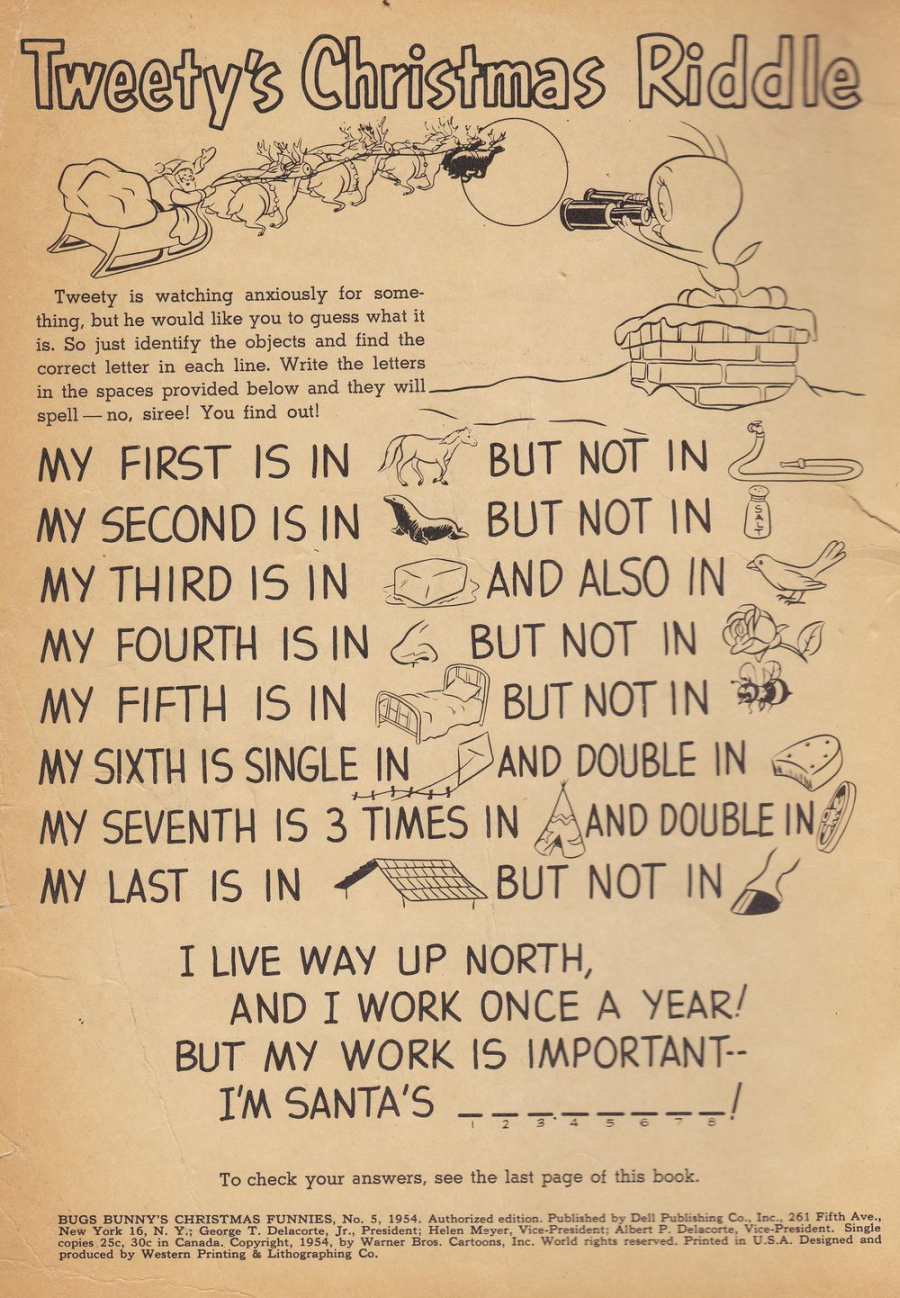 Tweety's Christmas Riddle
Tweety is watching anxiously for some-
thing, but he would like you to guess what it
is. So just identify the objects and find the
correct letter in each line. Write the letters
in the spaces provided below and they will
spell — no, siree! You find out!
MY FIRST IS IN BUT NOT IN
MY SECOND IS IN BUT NOT IN SALT
MY THIRD IS IN AND ALSO IN
MY FOURTH IS IN BUT NOT IN
MY FIFTH IS IN BUT NOT IN
MY SIXTH IS SINGLE IN AND DOUBLE IN
MY SEVENTH IS 3 TIMES IN AND DOUBLE IN
MY LAST IS IN BUT NOT IN
I LIVE WAY UP NORTH,
AND I WORK ONCE A YEAR!
BUT MY WORK IS IMPORTANT--
I'M SANTA'S _ _ _ _ _ _ _ _!
1 2 3 4 5 6 7 8
To check your answers, see the last page of this book.
BUGS BUNNY'S CHRISTMAS FUNNIES, No. 5, 1954. Authorized edition. Published by Dell Publishing Co., Inc., 261 Fifth Ave.,
New York 16, N. Y.; George T. Delacorte, Jr., President; Helen Meyer, Vice-President; Albert P. Delacorte, Vice-President. Single
copies 25c, 30c in Canada. Copyright, 1954, by Warner Bros. Cartoons, Inc. World rights reserved. Printed in U.S.A. Designed and
produced by Western Printing & Lithographing Co.